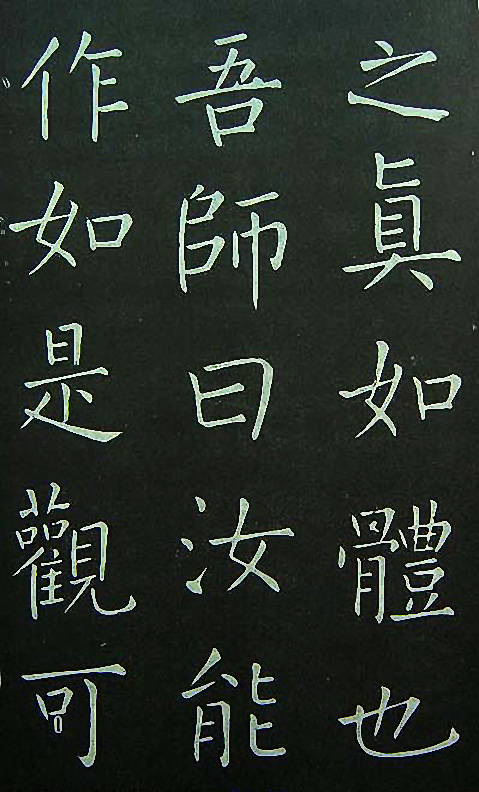 之眞如體也
吾師曰汝能
作如是觀可